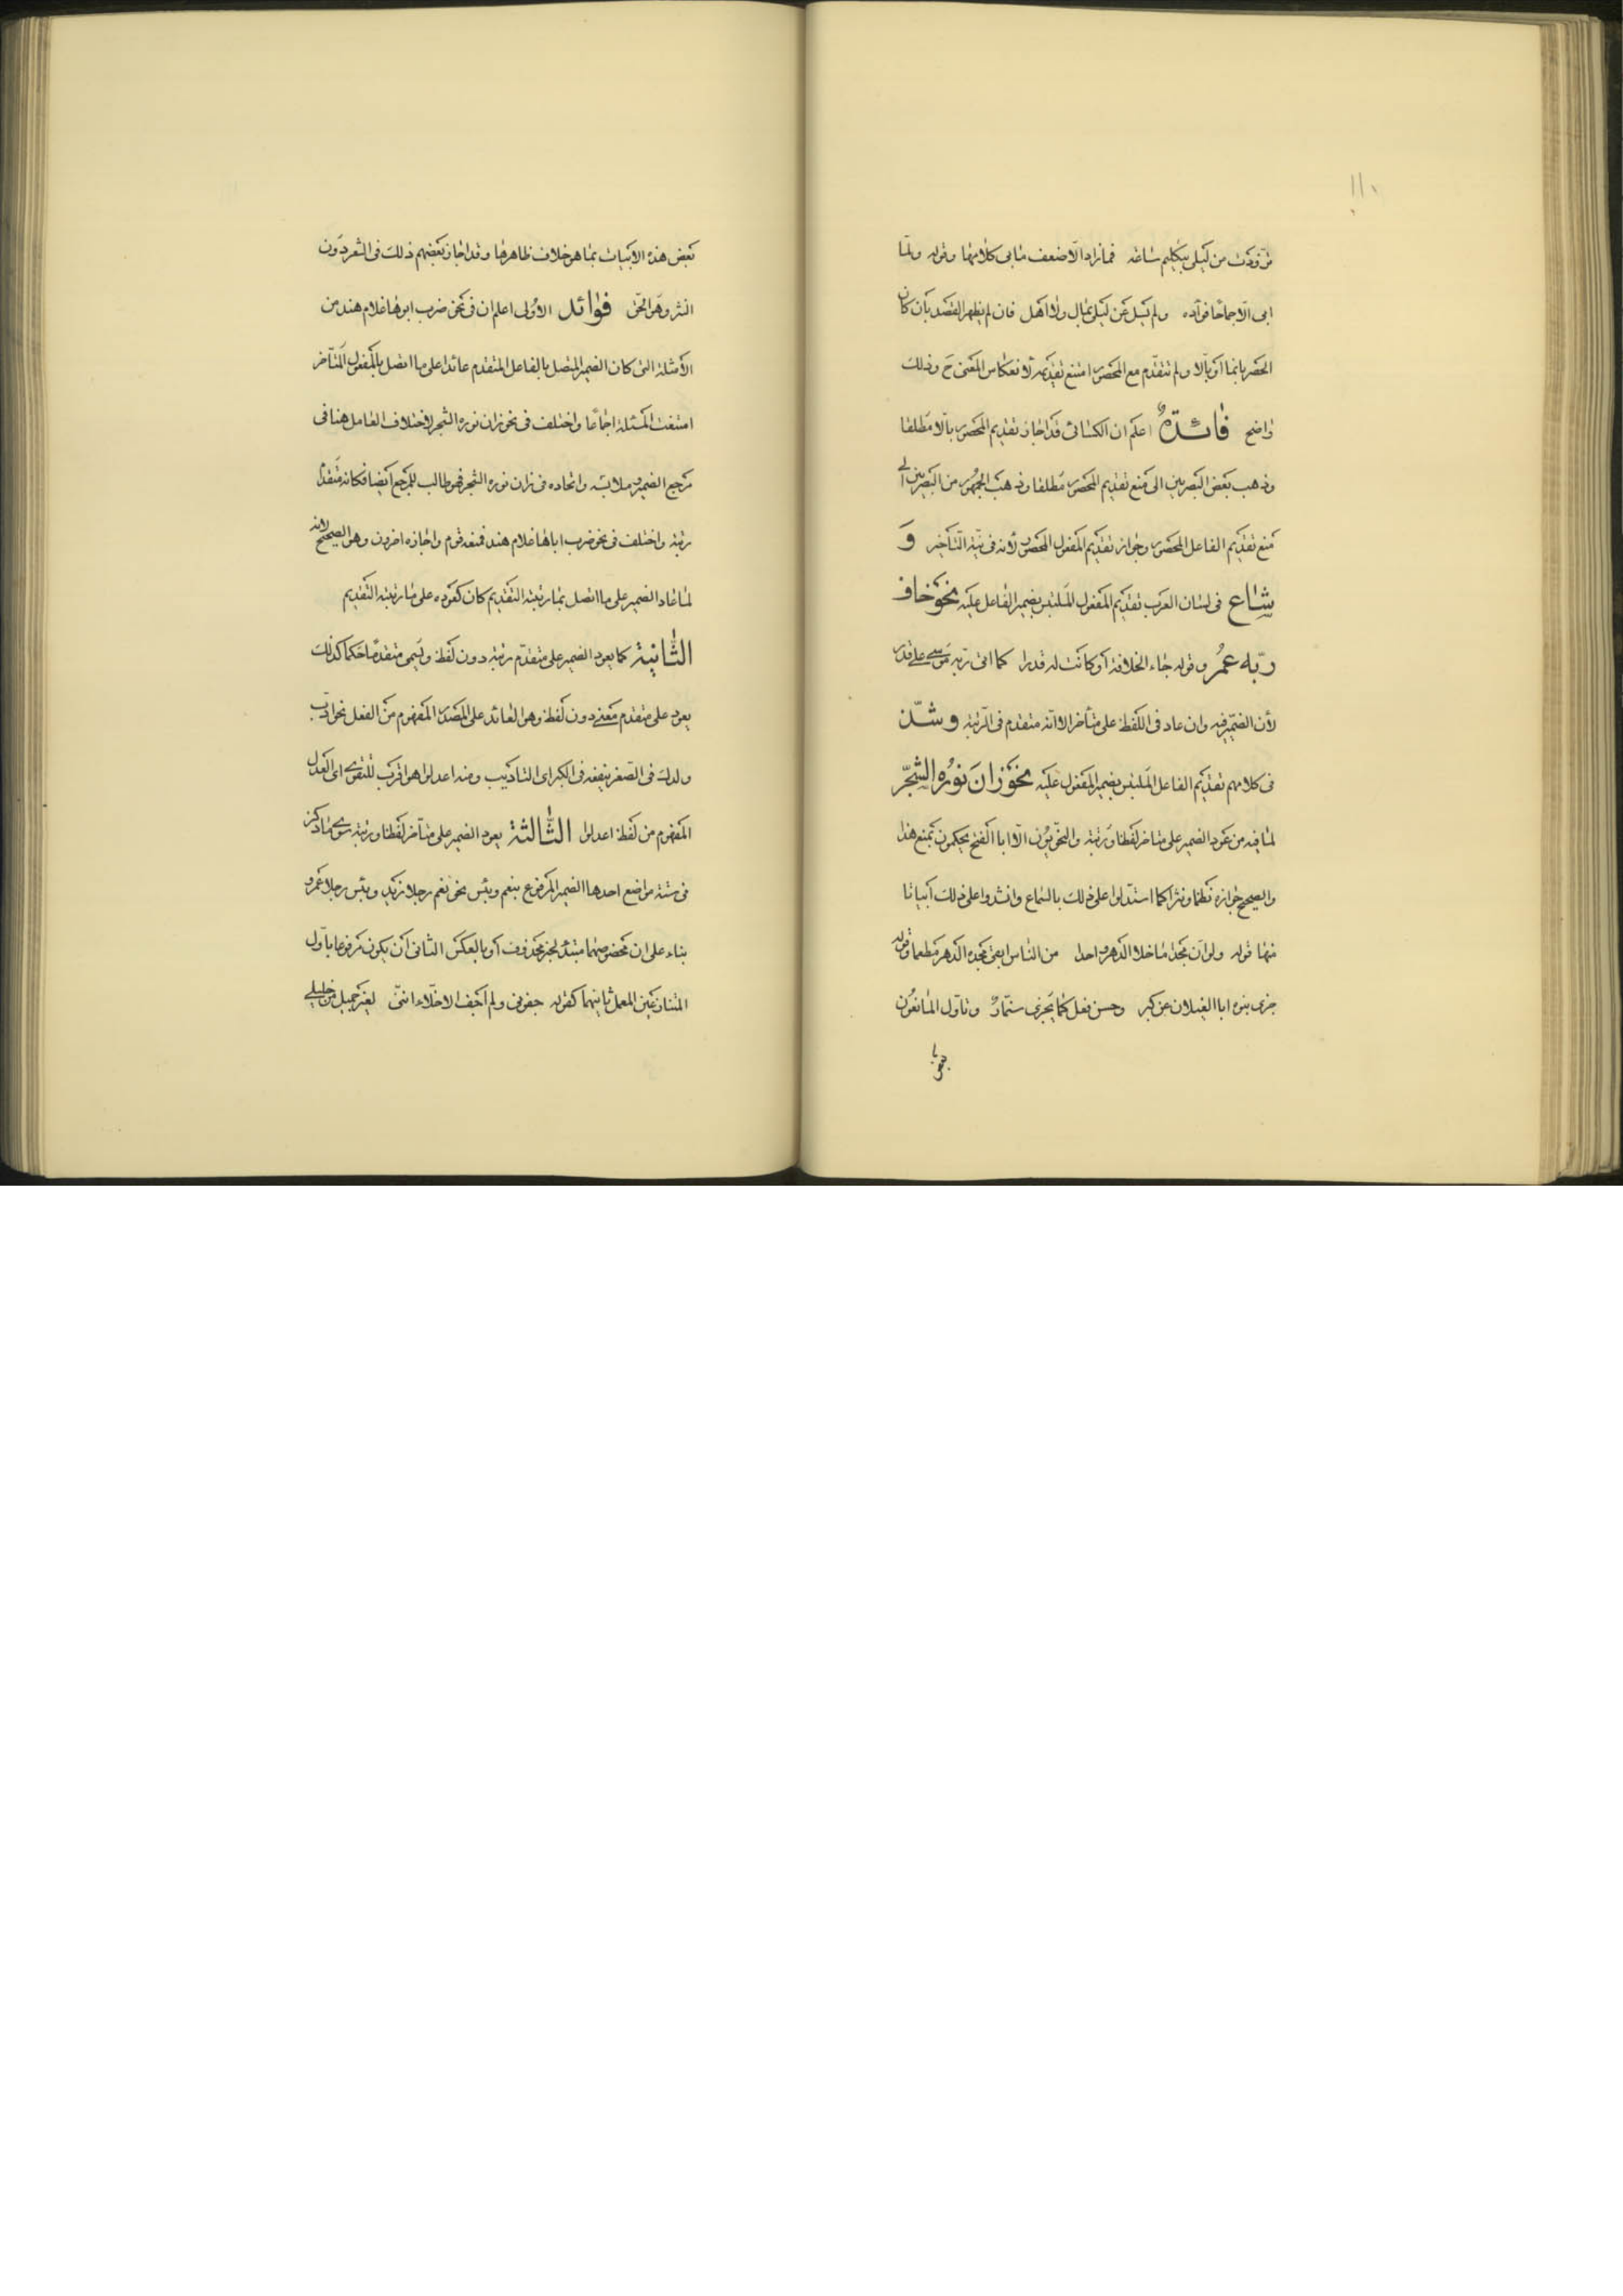 ١١٠
تزودت من ليلى بتكليم ساعة فما زاد الا ضعف ما بي كلامها وقوله ولما
ابى الا جماحا فؤاده ولم يسل عن ليلى بمال ولا اهل فان لم يظهر القصد بأن كان
الحصر بانما او بالا ولم تتقدم مع المحصور امتنع تقديمه لانعكاس المعنى ح وذلك
واضح فائدة اعلم ان الكسائى قد اجاز تقديم المحصور بالا مطلقا
وذهب بعض البصريين الى منع تقديم المحصور مطلقا وذهب الجمهور من البصريين الى
منع تقديم الفاعل المحصور وجواز تقديم المفعول المحصور لأنه فى نية التأخير وَ
شاع فى لسان العرب تقديم المفعول الملتبس بضمير الفاعل عليه نحو خاف
ربّه عمُر وقوله جاء الخلافة أو كانت له قدرا كما اتى ربه موسى على قدر
لأن الضمير فيه وان عاد فى اللفظ على متأخر الا انه متقدم فى الرتبة وشذّ
فى كلامهم تقديم الفاعل الملتبس بضمير المفعول عليه نحو زانَ نورُه الشجرَ
لما فيه من عود الضمير على متاخر لفظا ورتبة والنحويون الا ابا الفتح يحكمون بمنع هذا
والصحيح جوازه نظما ونثرا كما استدلوا على ذلك بالسماع وانشدوا على ذلك أبياتا
منها قوله ولو أن مجدا ما خلا الدهر واحدا من الناس ابقى مجده الدهر مطعما وقوله
جزى بنوه ابا الغيلان عن كبر وحسن فعل كما يجزى سنمار وتاول المانعون
بعض
بعض هذه الابيات بما هو خلاف ظاهرها وقد اجاز بعضهم ذلك فى الشعر دون
النثر وهو الحق فوائد الأولى اعلم ان فى نحو ضرب ابوها غلام هند من
الأمثلة التى كان الضمير المتصل بالفاعل المتقدم عائدا على ما اتصل بالمفعول المتأخر
امتنعت المسئلة اجماعًا واختلف فى نحو زان نوره الشجر لاختلاف العامل هنا فى
مرجع الضمير وملابسه واتحاده فى زان نوره الشجر فهو طالب للمرجع أيضا فكانه متقدم
رتبة واختلف فى نحو ضرب اباها غلام هند فمنعه قوم واجازه اخرون وهو الصحيح لانه
لما عاد الضمير على ما اتصل بما رتبته التقديم كان كعوده على ما رتبته التقديم
الثانية كما يعود الضمير على متقدم رتبة دون لفظ ويسمى متقدمًا حكما كذلك
يعود على متقدم معنى دون لفظ وهو العائد على المصدر المفهوم من الفعل نحو ادب
ولدك فى الصغر ينفعه فى الكبر اى التاديب ومنه اعدلوا هو اقرب للتقوى اى العدل
المفهوم من لفظ اعدلوا الثالثة يعود الضمير على متأخر لفظا ورتبة سوى ما ذكر
فى ستة مواضع احدها الضمير المرفوع بنعم وبئس نحو نعم رجلا زيد وبئس رجلا عمرو
بناء على ان مخصوصهما مبتدأ لخبر محذوف أو بالعكس الثانى أن يكون مرفوعا بأول
المتنازعين المعمل ثانيهما كقوله جفونى ولم أجف الاخلاء اننى لغير جميل من خليلى